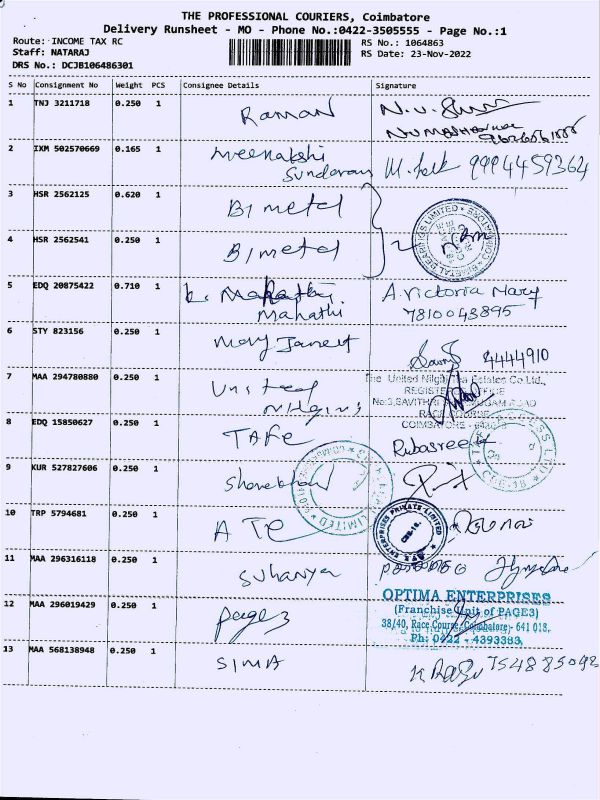 THE PROFESSIONAL COURIERS, Coimbatore
Delivery Runsheet - MO - Phone No.:0422-3505555 - Page No.:1
Route: INCOME TAX RC
RS No.: 1064863
Staff: NATARAJ
RS Date: 23-Nov-2022
DRS No.: DCJB106486301
S No Consignment No Weight PCS Consignee Details Signature
1 TNJ 3211718 0.250 1 Raman
2 IXM 502570669 0.165 1 Meenakshi Sundaram 9994459364
3 HSR 2562125 0.620 1 Bimetal
4 HSR 2562541 0.250 1 Bimetal
BIMETAL BEARINGS LIMITED
5 EDQ 20875422 0.710 1 A. Victoria Mary
Mahathi 7810043895
6 STY 823156 0.250 1 Mary Janet 4444910
7 MAA 294780880 0.250 1 United Nilgiris
The United Nilgiri Tea Estates Co Ltd.,
REGISTERED OFFICE
No:3, SAVITHRI SHANMUGAM ROAD
RACE COURSE
COIMBATORE -
8 EDQ 15850627 0.250 1 TAFE Rubasree
9 KUR 527827606 0.250 1
10 TRP 5794681 0.250 1 ATE
ENTERPRISES PRIVATE LIMITED
CBE-18.
11 MAA 296316118 0.250 1 Suhanya
12 MAA 296019429 0.250 1 page 3
OPTIMA ENTERPRISES
(Franchise Unit of PAGE3)
38/40, Race Course, Coimbatore - 641 018.
Ph: 0422 - 4393383
13 MAA 568138948 0.250 1 SIMA K Raju 7548835092